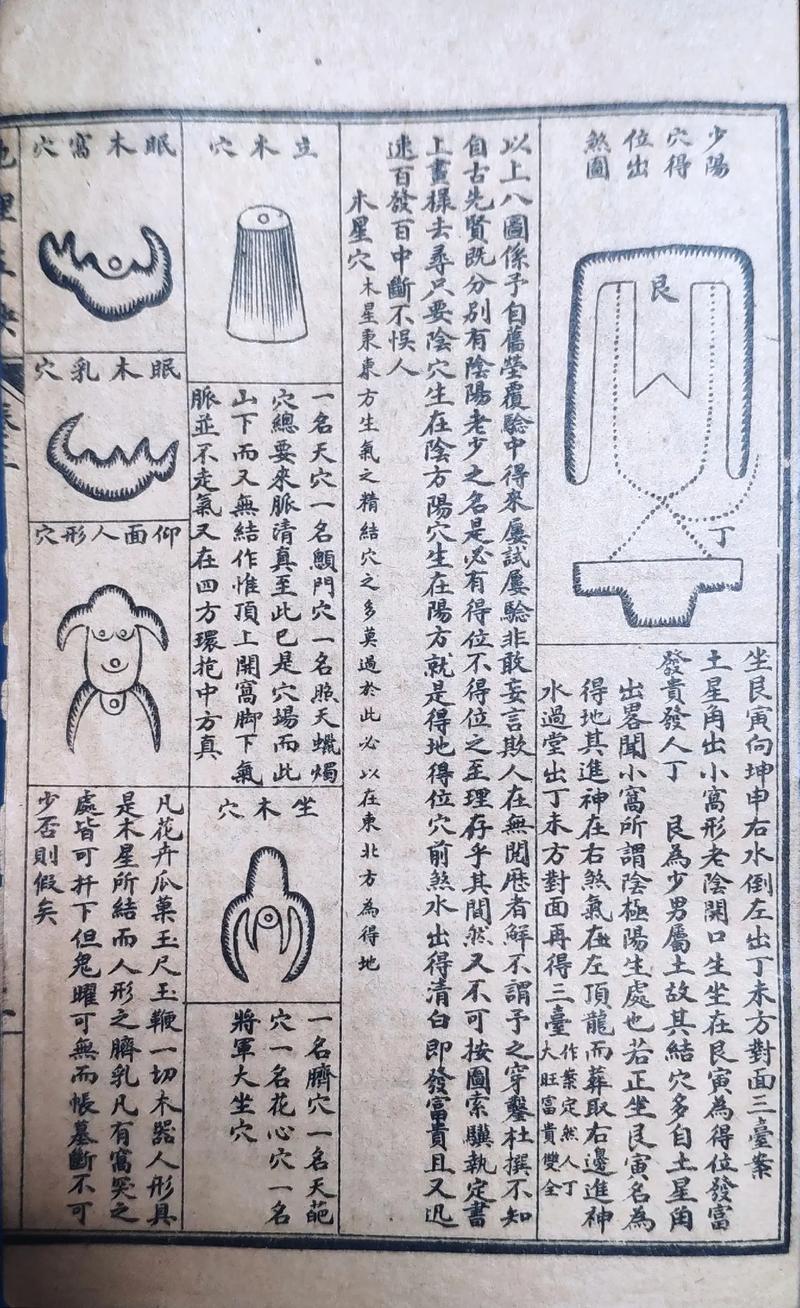 少陽
穴得
位出
煞圖
艮
丁
坐艮寅向坤申右水倒左出丁未方對面三臺案
土星角出小窩形老陰開口生坐在艮寅為得位發富
發貴發人丁　艮為少男屬土故其結穴多自土星角
出畧聞小窩所謂陰極陽生處也若正坐艮寅名為
得地其進神在右煞氣在左頂龍而葬取右邊進神
水過堂出丁未方對面再得三臺作案定然人丁
大旺富貴雙全
以上八圖係予自舊塋覆驗中得來屢試屢驗非敢妄言欺人在無閱歷者鮮不謂予之穿鑿杜撰不知
自古先賢既分別有陰陽老少之名是必有得位不得位之至理存乎其間然又不可按圖索驥執定書
上畫樣去尋只要陰穴生在陰方陽穴生在陽方就是得地得位穴前煞水出得清白即發富貴且又迅
速百發百中斷不悞人
木星穴木星秉東方生氣之精結穴之多莫過於此必以在東北方為得地
立木穴
一名天穴一名顖門穴一名照天蠟燭
穴總要來脈清真至此已是穴場而此
山下而又無結作惟頂上開窩腳下氣
脈並不走氣又在四方環抱中方真
坐木穴
一名臍穴一名天葩
穴一名花心穴一名
將軍大坐穴
眠木窩穴
眠木乳穴
仰面人形穴
凡花卉瓜菓玉尺玉鞭一切木器人形具
是木星所結而人形之臍乳凡有窩突之
處皆可扦下但鬼曜可無而帳幕斷不可
少否則假矣